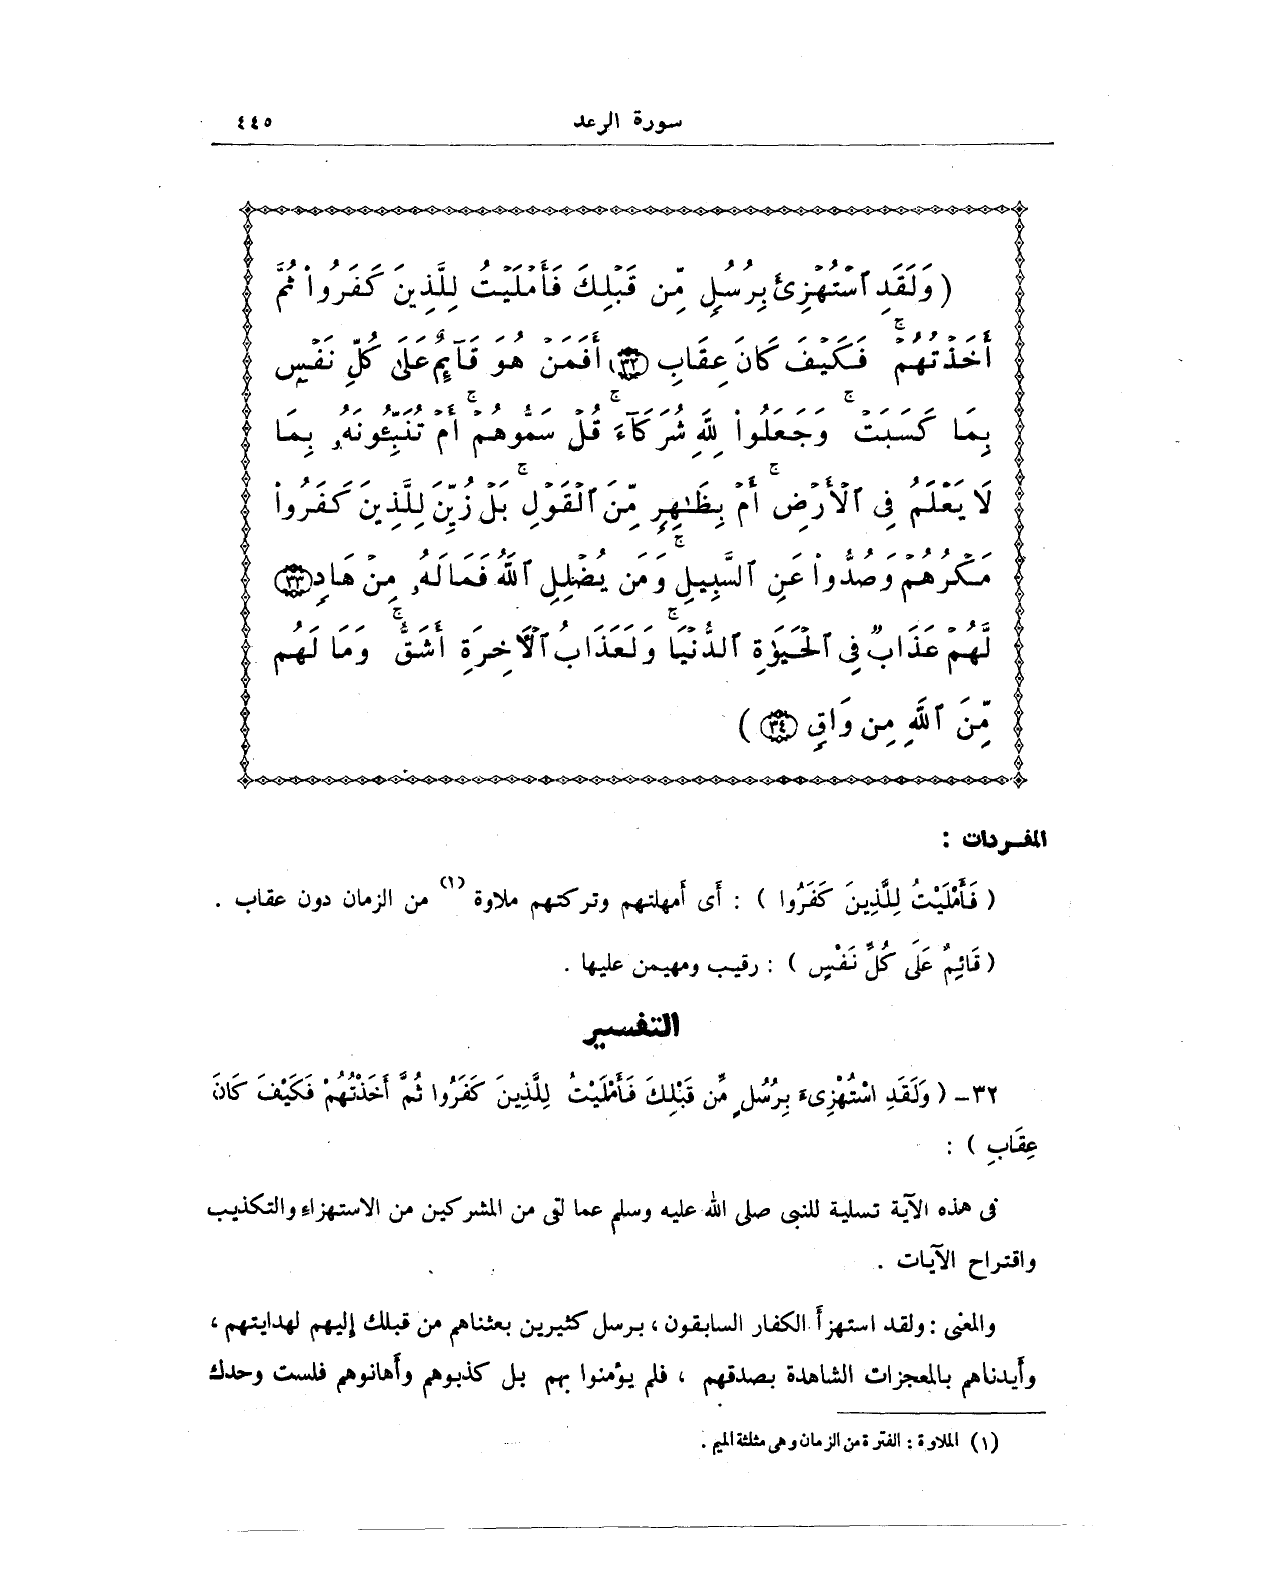 سورة الرعد ٤٤٥
( وَلَقَدِ ٱسْتُهْزِئَ بِرُسُلٍ مِّن قَبْلِكَ فَأَمْلَيْتُ لِلَّذِينَ كَفَرُواْ ثُمَّ
أَخَذْتُهُمْ ۖ فَكَيْفَ كَانَ عِقَابِ ﴿٣٢﴾ أَفَمَنْ هُوَ قَآئِمٌ عَلَىٰ كُلِّ نَفْسٍۭ
بِمَا كَسَبَتْ ۚ وَجَعَلُواْ لِلَّهِ شُرَكَآءَ ۚ قُلْ سَمُّوهُمْ ۚ أَمْ تُنَبِّئُونَهُۥ بِمَا
لَا يَعْلَمُ فِى ٱلْأَرْضِ ۚ أَم بِظَٰهِرٍ مِّنَ ٱلْقَوْلِ ۚ بَلْ زُيِّنَ لِلَّذِينَ كَفَرُواْ
مَكْرُهُمْ وَصُدُّواْ عَنِ ٱلسَّبِيلِ ۚ وَمَن يُضْلِلِ ٱللَّهُ فَمَا لَهُۥ مِنْ هَادٍ ﴿٣٣﴾
لَّهُمْ عَذَابٌ فِى ٱلْحَيَوٰةِ ٱلدُّنْيَا ۚ وَلَعَذَابُ ٱلْآخِرَةِ أَشَقُّ ۚ وَمَا لَهُم
مِّنَ ٱللَّهِ مِن وَاقٍ ﴿٣٤﴾ )
المفـردات :
( فَأَمْلَيْتُ لِلَّذِينَ كَفَرُوا ) : أى أمهلتهم وتركتهم ملاوة (١) من الزمان دون عقاب .
( قَائِمٌ عَلَى كُلِّ نَفْسٍ ) : رقيب ومهيمن عليها .
التفسير
٣٢- ( وَلَقَدِ اسْتُهْزِىءَ بِرُسُلٍ مِّن قَبْلِكَ فَأَمْلَيْتُ لِلَّذِينَ كَفَرُوا ثُمَّ أَخَذْتُهُمْ فَكَيْفَ كَانَ
عِقَابِ ) :
فى هذه الآية تسلية للنبى صلى الله عليه وسلم عما لقى من المشركين من الاستهزاء والتكذيب
واقتراح الآيات .
والمعنى : ولقد استهزأ الكفار السابقون ، برسل كثيرين بعثناهم من قبلك إليهم لهدايتهم ،
وأيدناهم بالمعجزات الشاهدة بصدقهم ، فلم يؤمنوا بهم بل كذبوهم وأهانوهم فلست وحدك
(١) الملاوة : الفترة من الزمان وهى مثلثة الميم .